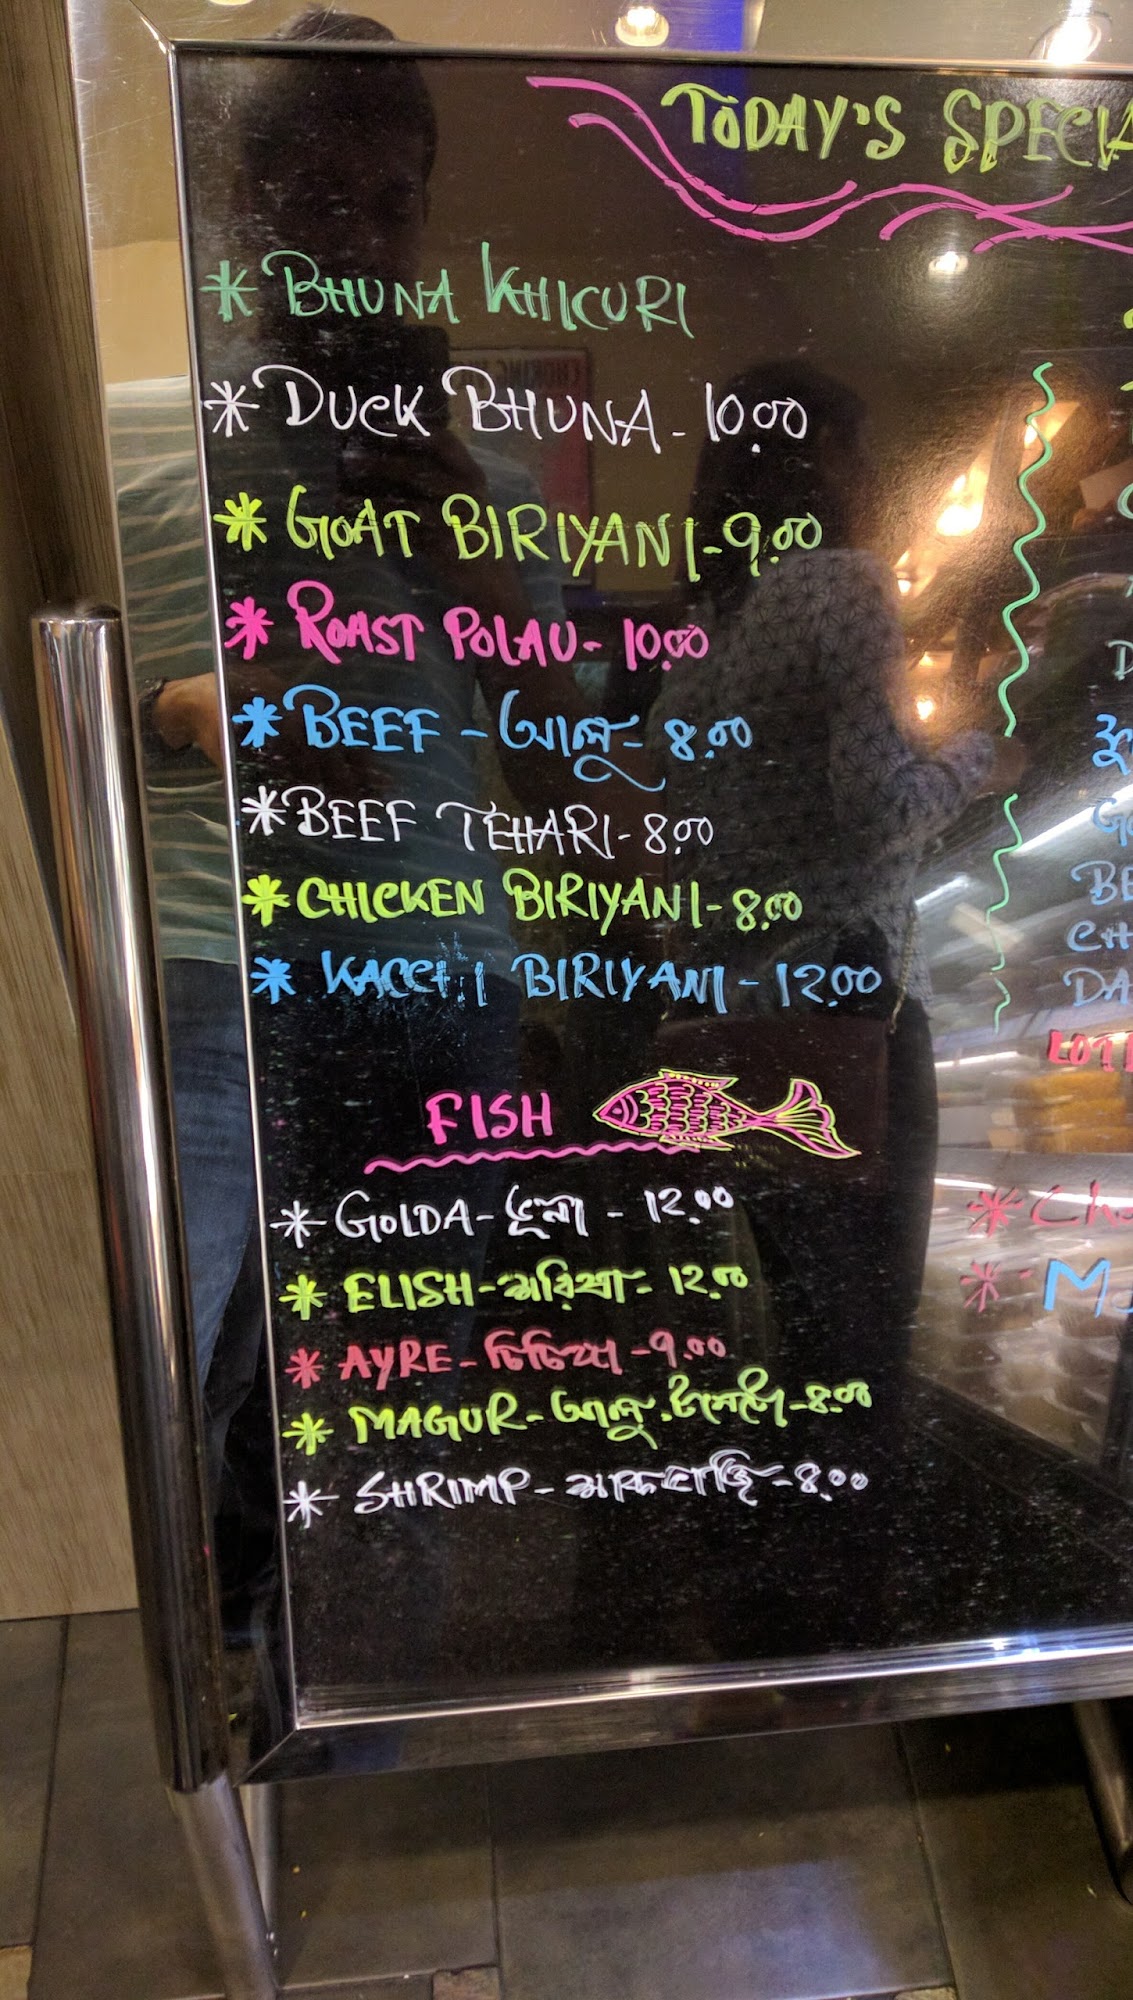 TODAY'S SPECIA
* BHUNA KHICURI
* DUCK BHUNA - 10.00
* GOAT BIRIYANI - 9.00
* ROAST POLAU - 10.00
* BEEF - আলু - 8.00
* BEEF TEHARI - 8.00
* CHICKEN BIRIYANI - 8.00
* KACCHI BIRIYANI - 12.00
FISH
* GOLDA - ভুনা - 12.00
* ELISH - সরিষা - 12.00
* AYRE - 9.00
* MAGUR - আলু. টমেটো - 8.00
* SHRIMP - 8.00